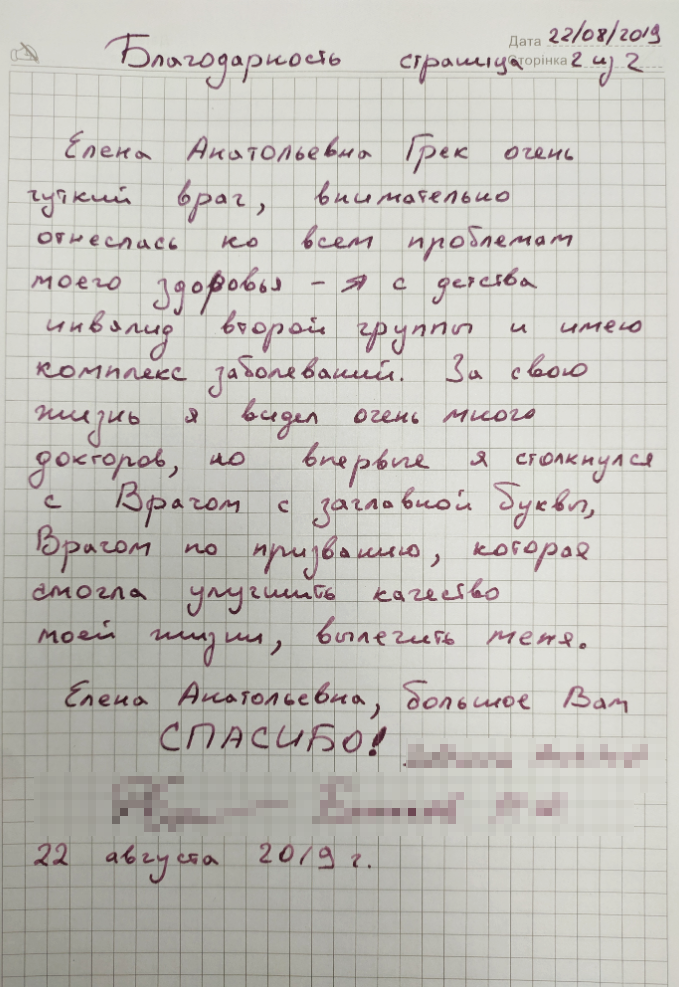 Дата 22/08/2019
Благодарность страница Сторінка 2 из 2
Елена Анатольевна Грек очень
чуткий врач, внимательно
отнеслась ко всем проблемам
моего здоровья – я с детства
инвалид второй группы и имею
комплекс заболеваний. За свою
жизнь я видел очень много
докторов, но впервые я столкнулся
с Врачом с заглавной буквы,
Врачом по призванию, которая
смогла улучшить качество
моей жизни, вылечить меня.
Елена Анатольевна, большое Вам
СПАСИБО!
22 августа 2019 г.